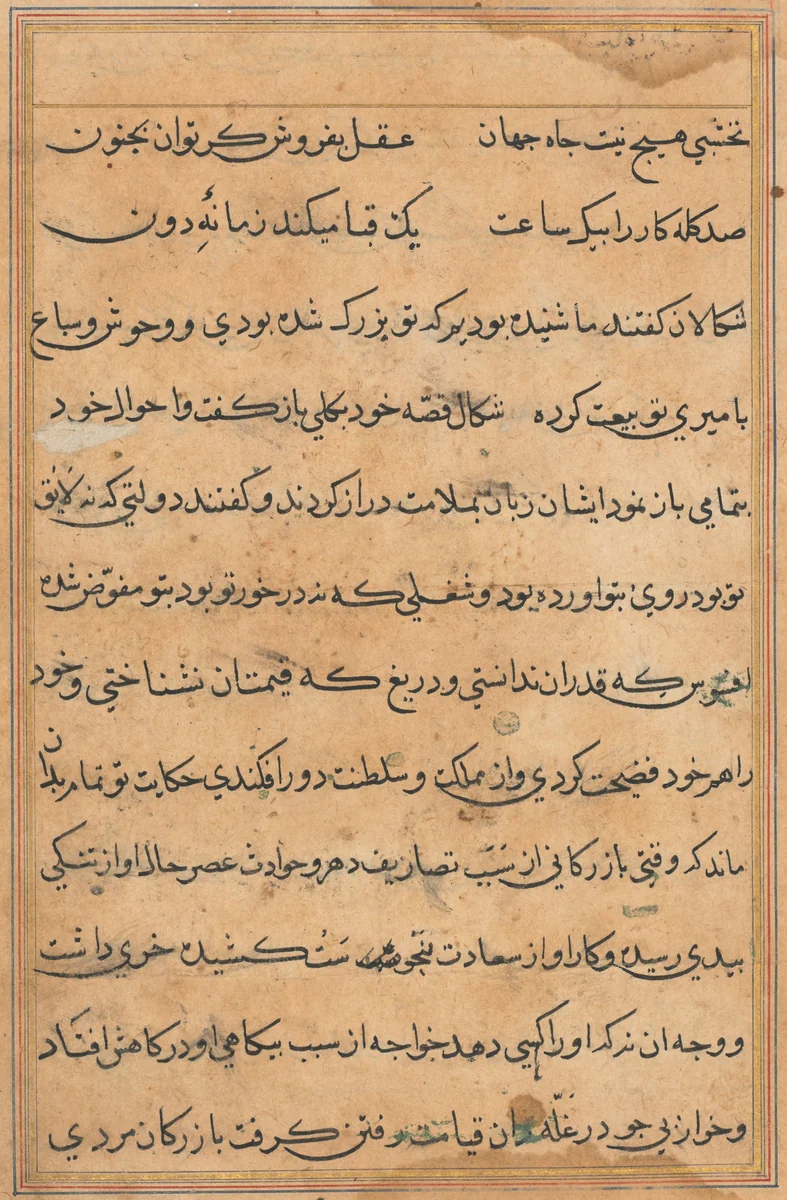 نخشبی هیچ نیست جاه جهان عقل بفروش کر توان بجنون
صد کله کار را بیک ساعت یک قبا میکند زمانهٔ دون
شکالان کفتند ما شنیده بودیم که تو بزرک شده بودی و وحوش و سباع
با میری تو بیعت کرده شکال قصّه خود بکلی باز کفت و احوال خود
بتمامی باز نمود ایشان زبان بملامت دراز کردند و کفتند دولتی که نه لایق
تو بود روی بتو اورده بود و شغلی که نه در خور تو بود بتو مفوّض شده
افسوس که قدر ان ندانستی و دریغ که قیمت ان نشناختی و خود
را هم خود فضیحت کردی و از مملکت و سلطنت دور افکندی حکایت تو تمام بدان
ماند که وقتی بازرکانی از سبب تصاریف دهر و حوادث عصر حال او از تنکی
بیدی رسیده و کار او از سعادت بنحوست کشیده خری داشت
و وجه ان نه که او را کسی دهد خواجه از سبب بیکاهی او در کاهش افتاد
و خر از بی جو در غلّه ران قیامت رفتن کرفت بازرکان مردی